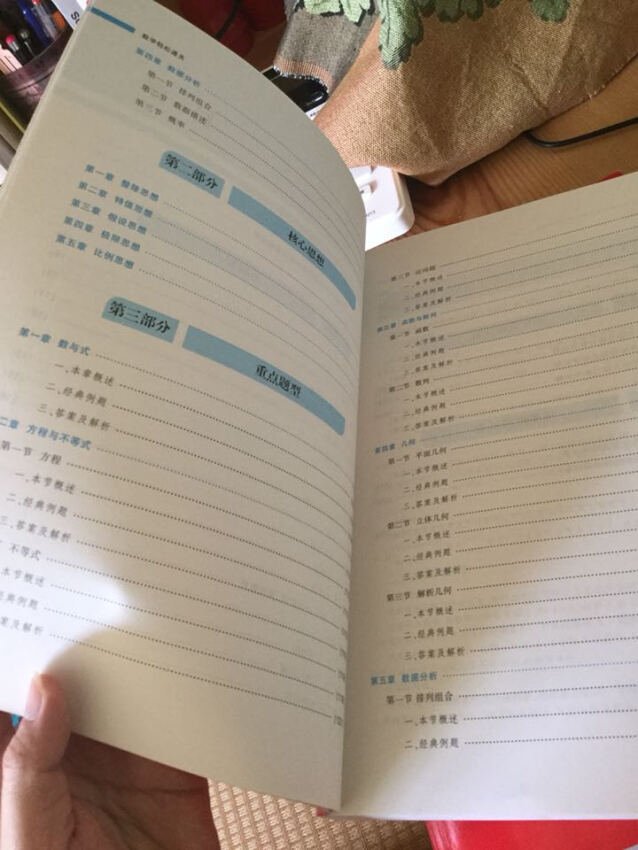 数学轻松通关
第四章 数据分析
第一节 排列组合
第二节 数据描述
第三节 概率
第二部分
核心思想
第一章 整除思想
第二章 特值思想
第三章 假设思想
第四章 极限思想
第五章 比例思想
第三部分
重点题型
第一章 数与式
一、本章概述
二、经典例题
三、答案及解析
二章 方程与不等式
第一节 方程
一、本节概述
二、经典例题
三、答案及解析
不等式
本节概述
经典例题
案及解析
第三节 应用题
一、本节概述
二、经典例题
三、答案及解析
第三章 函数与数列
第一节 函数
一、本节概述
二、经典例题
三、答案及解析
第二节 数列
一、本节概述
二、经典例题
三、答案及解析
第四章 几何
第一节 平面几何
一、本节概述
二、经典例题
三、答案及解析
第二节 立体几何
一、本节概述
二、经典例题
三、答案及解析
第三节 解析几何
一、本节概述
二、经典例题
三、答案及解析
第五章 数据分析
第一节 排列组合
一、本节概述
二、经典例题